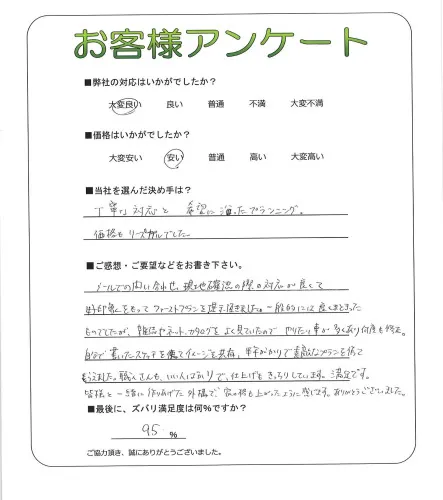 お客様アンケート
■弊社の対応はいかがでしたか？
大変良い 良い 普通 不満 大変不満
■価格はいかがでしたか？
大変安い 安い 普通 高い 大変高い
■当社を選んだ決め手は？
丁寧な対応と 希望に沿ったプランニング。
価格もリーズナブルでした。
■ご感想・ご要望などをお書き下さい。
メールでの問い合わせ、現地確認の際の対応が良くて
好印象をもって ファーストプランを提示頂きました。一般的には良くまとまった
ものでしたが、雑誌やネット、カタログをよく見ていたので やりたい事が多くあり何度も修正。
自分で書いたスケッチを使ってイメージを共有、半年がかりで素敵なプランを作って
もらえました。職人さんも、いい人ばかりで、仕上げもきっちりしています。満足です。
皆様と一緒に作りあげた外構で、家の格も上がったように感じます。ありがとうございました。
■最後に、ズバリ満足度は何%ですか？
95 %
ご協力頂き、誠にありがとうございました。